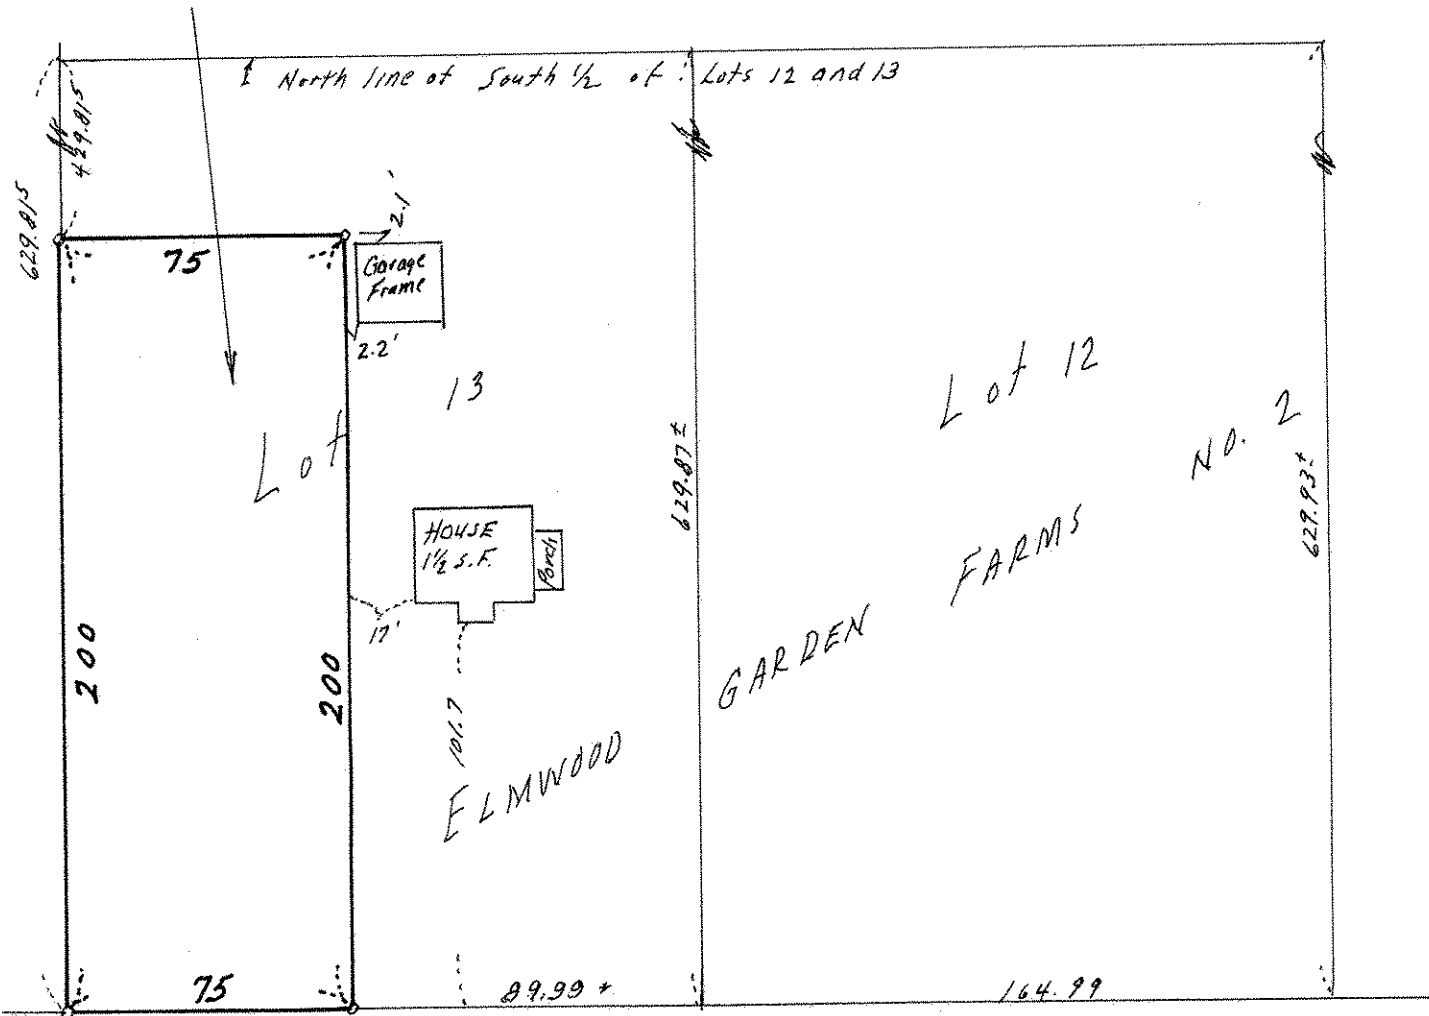 North line of South ½ of Lots 12 and 13
429.815
629.815
75
2.1'
Garage
Frame
2.2'
Lot 13
Lot 12
629.87±
629.93±
HOUSE
1½ S.F.
Porch
17'
101.7
200
200
ELMWOOD GARDEN FARMS NO. 2
75
89.99 ±
164.99